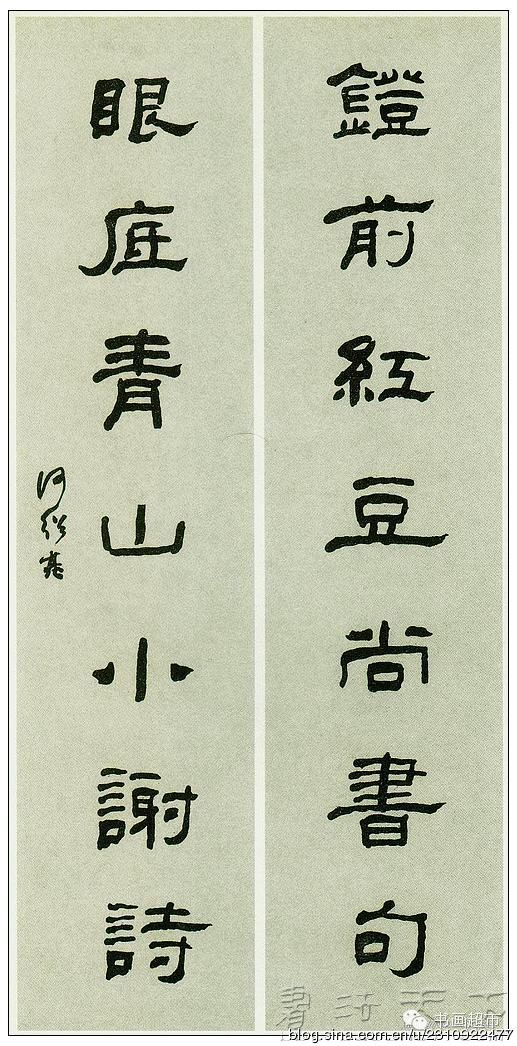 鐙前紅豆尚書句
眼底青山小謝詩
何紹基
书画超市
blog.sina.com.cn/u/2310922477